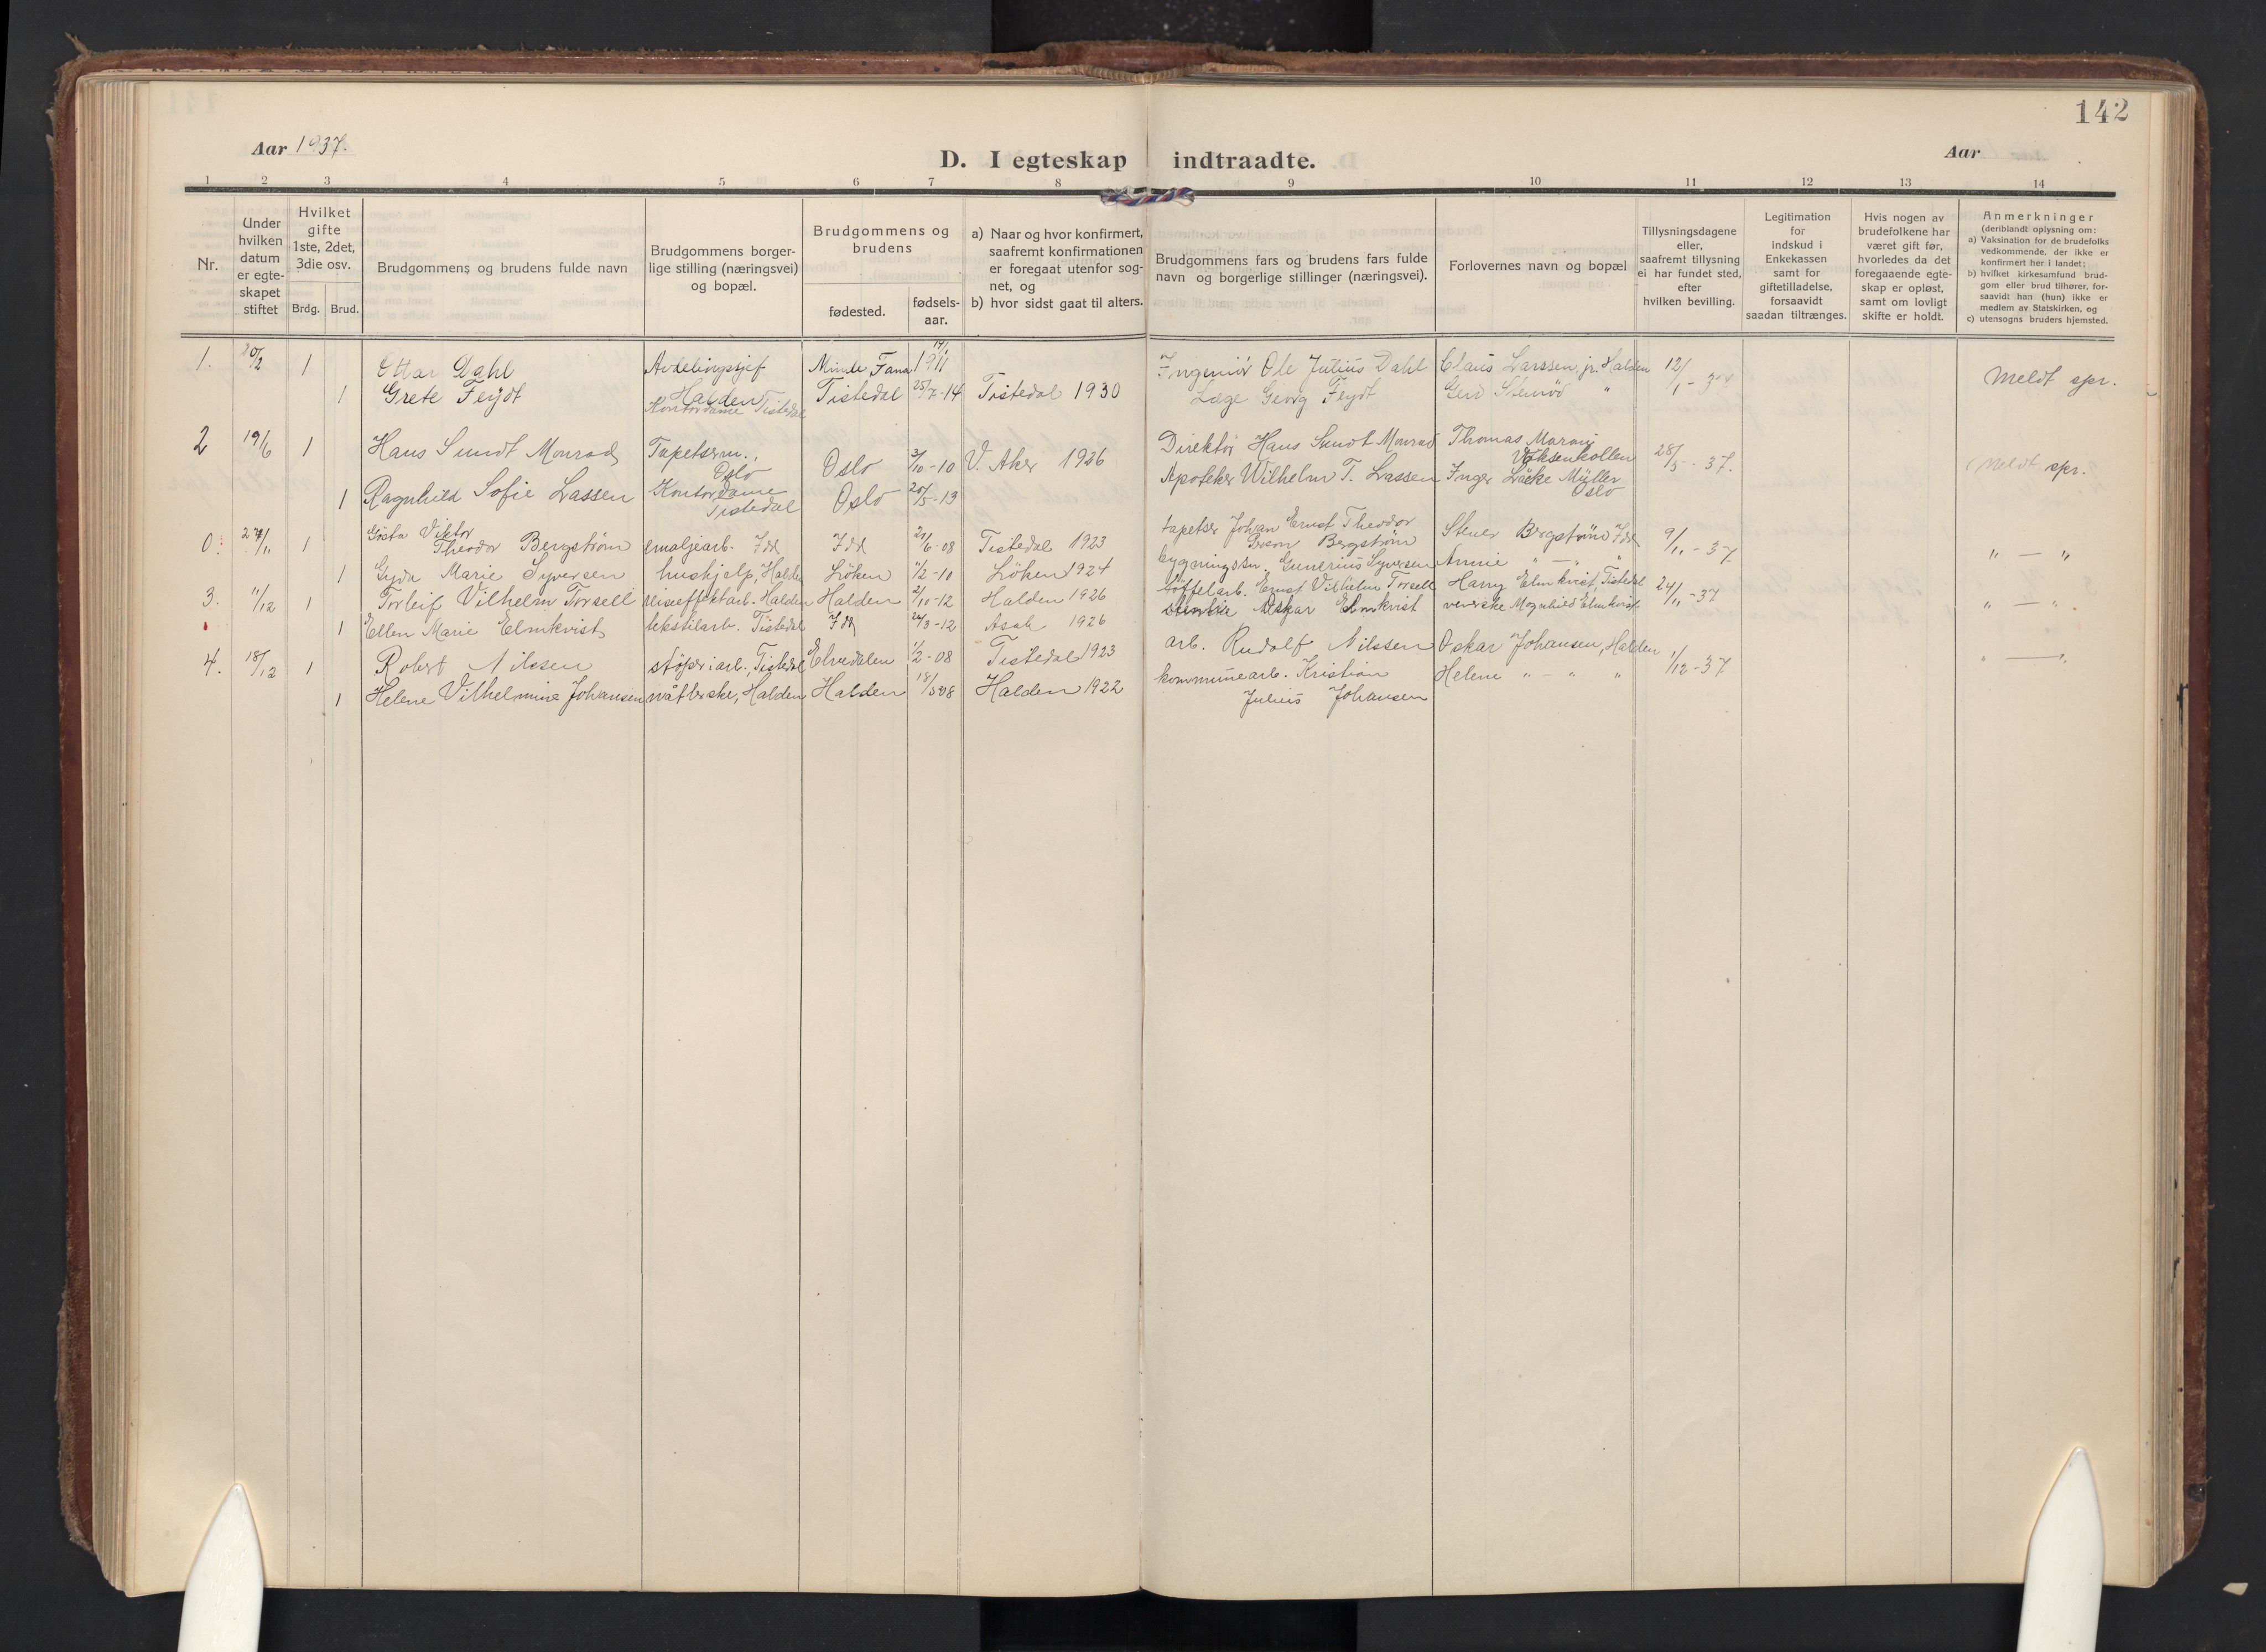 142
Aar 1937.
D. I egteskap indtraadte.
Aar
1 2 3 4 5 6 7 8 9 10 11 12 13 14
Nr.
Under hvilken datum er egte-skapet stiftet
Hvilket gifte 1ste, 2det, 3die osv.
Brdg. Brud.
Brudgommens og brudens fulde navn
Brudgommens borger-lige stilling (næringsvei) og bopæl.
Brudgommens og brudens
fødested.
fødsels-aar.
a) Naar og hvor konfirmert, saafremt konfirmationen er foregaat utenfor sog-net, og
b) hvor sidst gaat til alters.
Brudgommens fars og brudens fars fulde navn og borgerlige stillinger (næringsvei).
Forlovernes navn og bopæl
Tillysningsdagene eller, saafremt tillysning ei har fundet sted, efter hvilken bevilling.
Legitimation for indskud i Enkekassen samt for giftetilladelse, forsaavidt saadan tiltrænges.
Hvis nogen av brudefolkene har været gift før, hvorledes da det foregaaende egte-skap er opløst, samt om lovligt skifte er holdt.
Anmerkninger
(deriblandt oplysning om:
a) Vaksination for de brudefolks vedkommende, der ikke er konfirmert her i landet;
b) hvilket kirkesamfund brud-gom eller brud tilhører, for-saavidt han (hun) ikke er medlem av Statskirken, og
c) utensogns bruders hjemsted.
1. 20/2 1 Ottar Dahl Avdelingssjef Halden Minde Fana 14/1 1911 Ingeniør Ole Julius Dahl Claus Larssen jr. Halden 12/1 - 37 Meldt spr.
1 Grete Feydt Kontordame Tistedal Tistedal 25/7-14 Tistedal 1930 Læge Georg Feydt Gerd "
2 19/6 1 Hans Sundt Monrad Tapetserm., Oslo Oslo 3/10-10 V. Aker 1926 Direktør Hans Sundt Monrad Thomas Voksenkollen 28/5 - 37. Meldt spr.
1 Ragnhild Sofie Lassen Kontordame Tistedal Oslo 20/5-13 Apoteker Wilhelm T. Lassen Inger Müller Oslo
0. 27/11 1 Gösta Viktor Theodor Bergstrøm emaljearb. Idd Idd 21/6-08 Tistedal 1923 tapetser Johan Ernst Theodor Bergstrøm Bergstrøm Idd 9/11-37 " — "
1 Gyda Marie Syversen hushjelp, Halden Löken 11/2-10 Löken 1924 bygningssn. Gunerius Syversen Annie " — "
3. 11/12 1 Torleif Vilhelm Torsell reiseeffektarb. Halden Halden 2/10-12 Halden 1926 töffelarb. Ernst Vilhelm Torsell Harry Elmkvist, Tistedal 24/11-37 " — "
1 Ellen Marie Elmkvist tekstilarb. Tistedal Idd 24/3-12 Asak 1926 Oskar Elmkvist veverske Magnhild Elmkvist
4. 18/12 1 Robert Nilssen støperiarb., Tistedal Elvedalen 1/2-08 Tistedal 1923 arb. Rudolf Nilssen Oskar Johansen, Halden 1/12-37 " — "
1 Helene Vilhelmine Johansen nåtlerske, Halden Halden 18/5 08 Halden 1922 kommunearb. Kristian Julius Johansen Helene " - " "